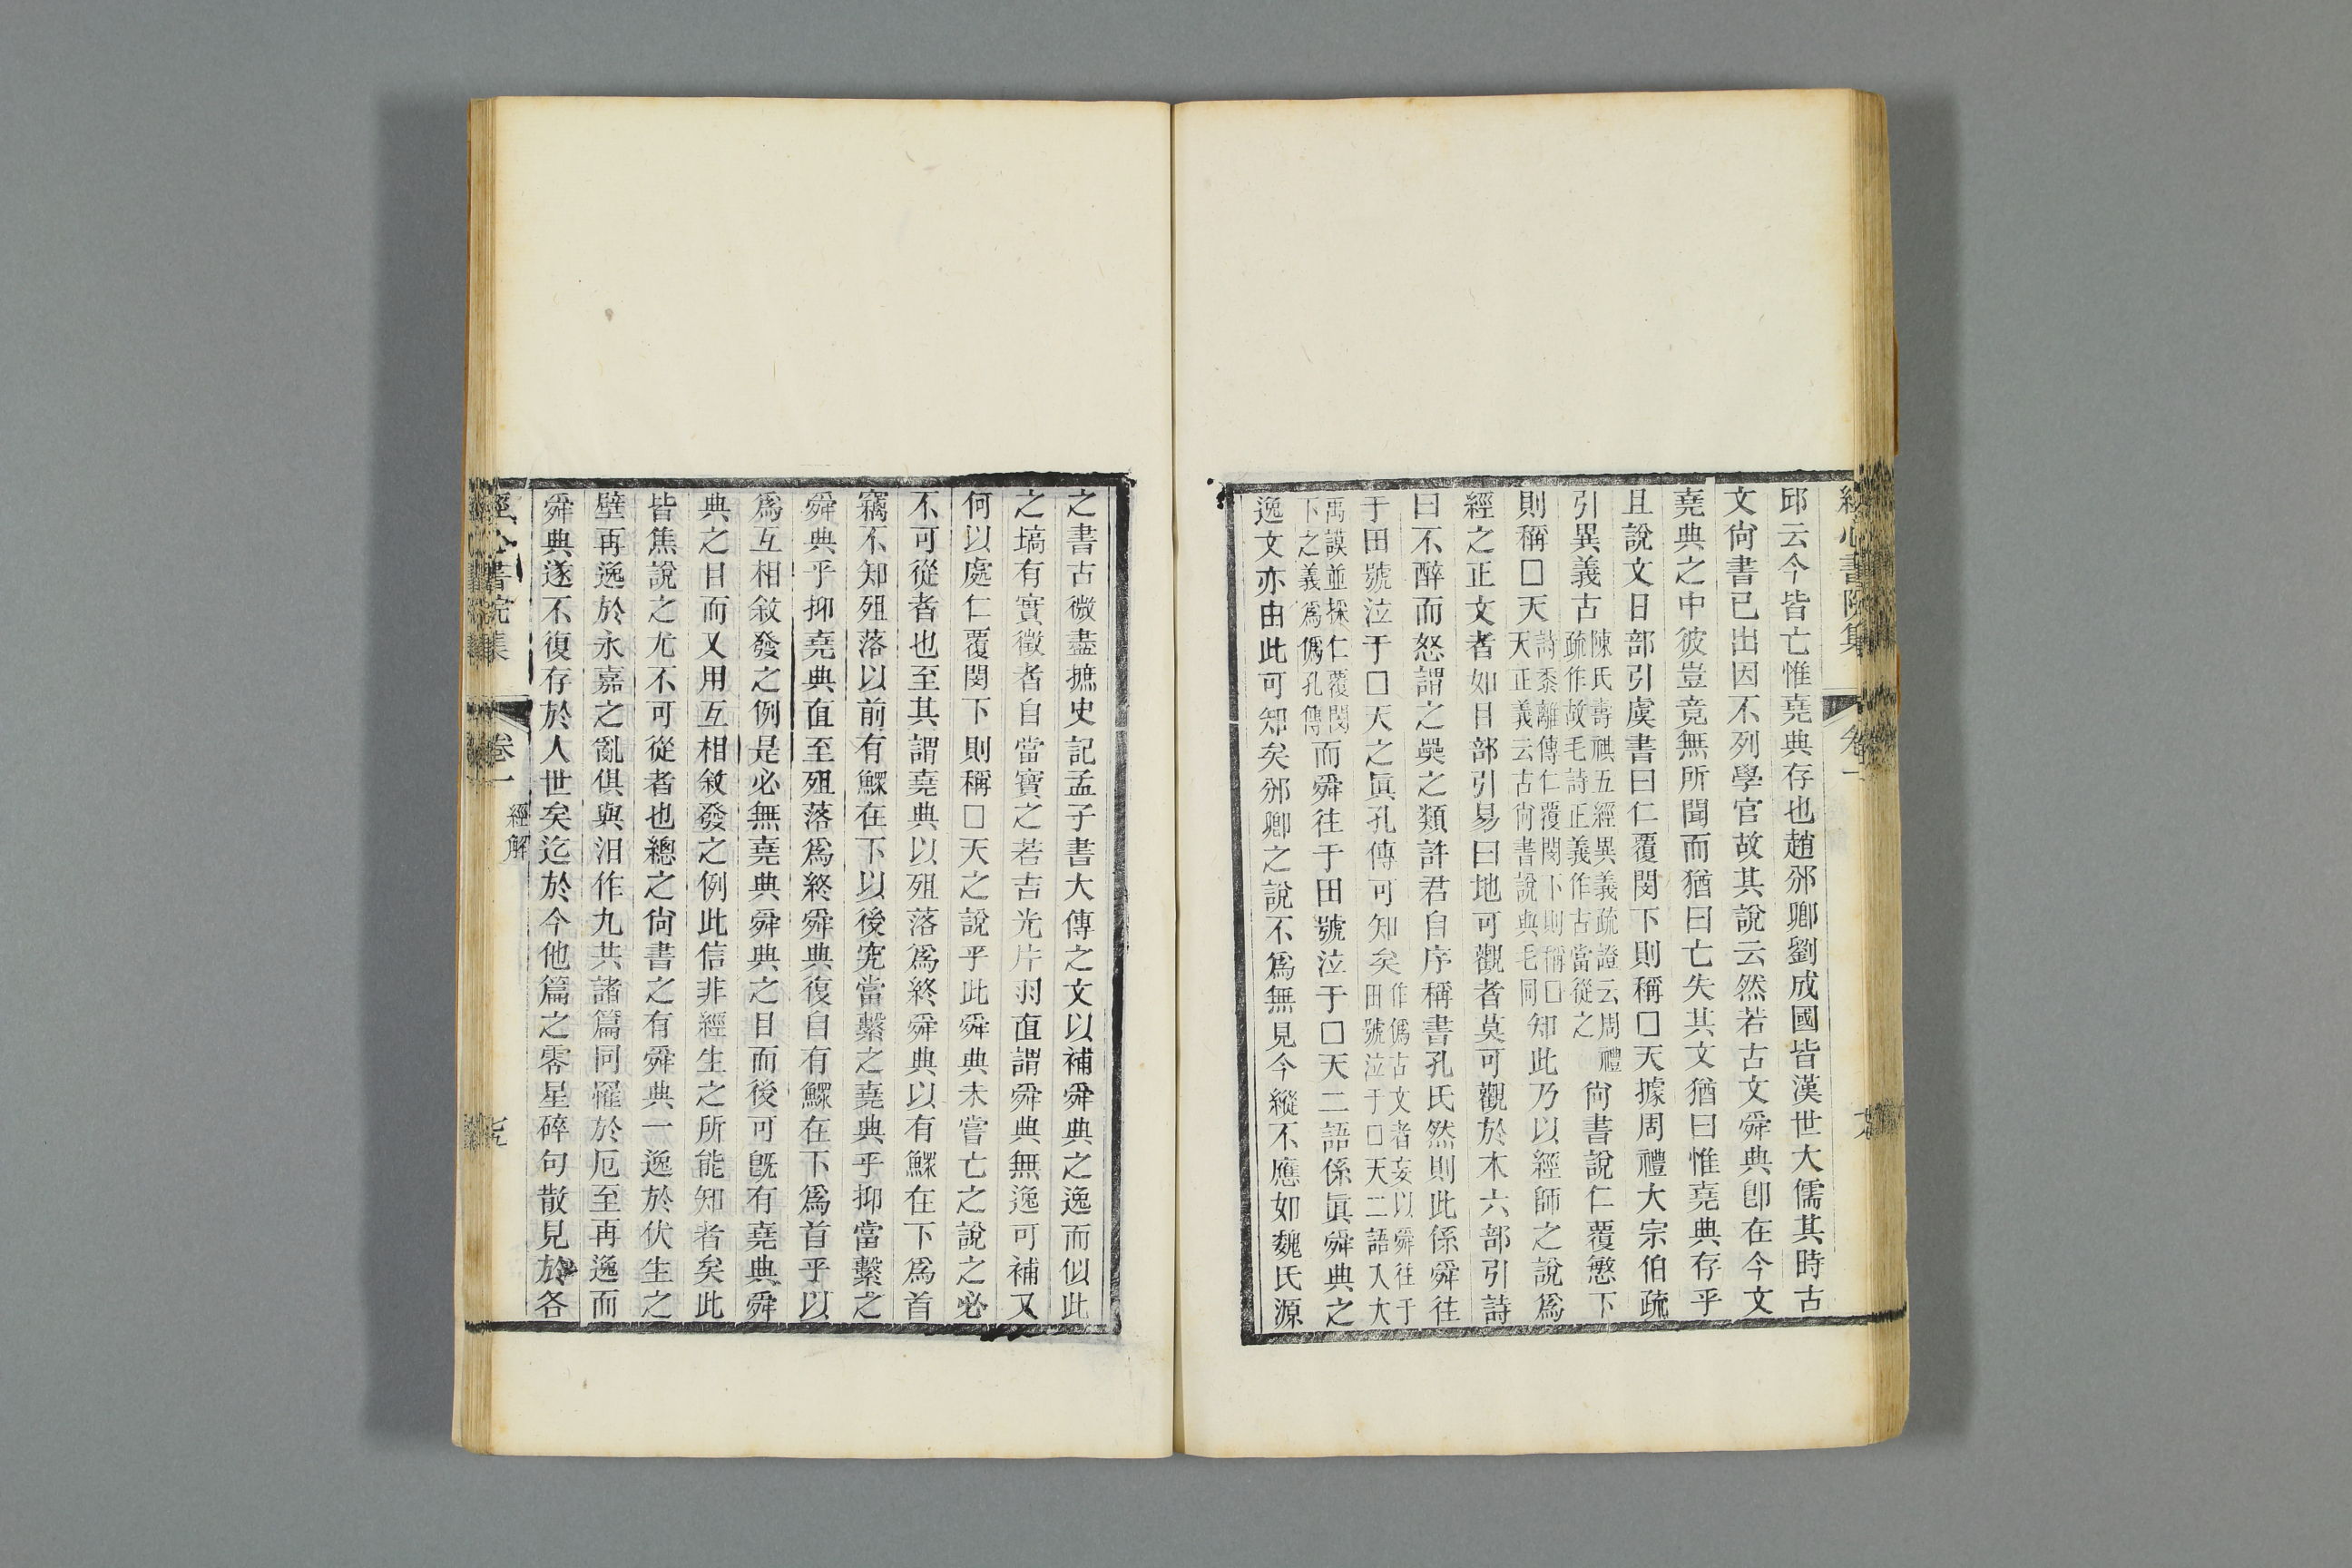 經心書院集 卷一
邱云今皆亡惟堯典存也趙邠卿劉成國皆漢世大儒其時古
文尙書已出因不列學官故其說云然若古文舜典卽在今文
堯典之中彼豈竟無所聞而猶曰亡失其文猶曰惟堯典存乎
且說文日部引虞書曰仁覆閔下則稱□天據周禮大宗伯疏
引異義古
陳氏壽祺五經異義疏證云周禮
疏作故毛詩正義作古當從之
尙書說仁覆愍下
則稱□天
詩黍離傳仁覆閔下則稱□
天正義云古尙書說與毛同
知此乃以經師之說爲
經之正文者如目部引易曰地可觀者莫可觀於木六部引詩
曰不醉而怒謂之㚅之類許君自序稱書孔氏然則此係舜往
于田號泣于□天之眞孔傳可知矣
作僞古文者妄以舜往于
田號泣于□天二語入大
禹謨並採仁覆閔
下之義爲僞孔傳
而舜往于田號泣于□天二語係眞舜典之
逸文亦由此可知矣邠卿之說不爲無見今縱不應如魏氏源
之書古微盡摭史記孟子書大傳之文以補舜典之逸而似此
之塙有實徵者自當寶之若吉光片羽直謂舜典無逸可補又
何以處仁覆閔下則稱□天之說乎此舜典未嘗亡之說之必
不可從者也至其謂堯典以殂落爲終舜典以有鰥在下爲首
竊不知殂落以前有鰥在下以後究當繫之堯典乎抑當繫之
舜典乎抑堯典直至殂落爲終舜典復自有鰥在下爲首乎以
爲互相敘發之例是必無堯典舜典之目而後可旣有堯典舜
典之目而又用互相敘發之例此信非經生之所能知者矣此
皆焦說之尤不可從者也總之尙書之有舜典一逸於伏生之
壁再逸於永嘉之亂俱與汨作九共諸篇同罹於厄至再逸而
舜典遂不復存於人世矣迄於今他篇之零星碎句散見於各
經心書院集 卷一 經解